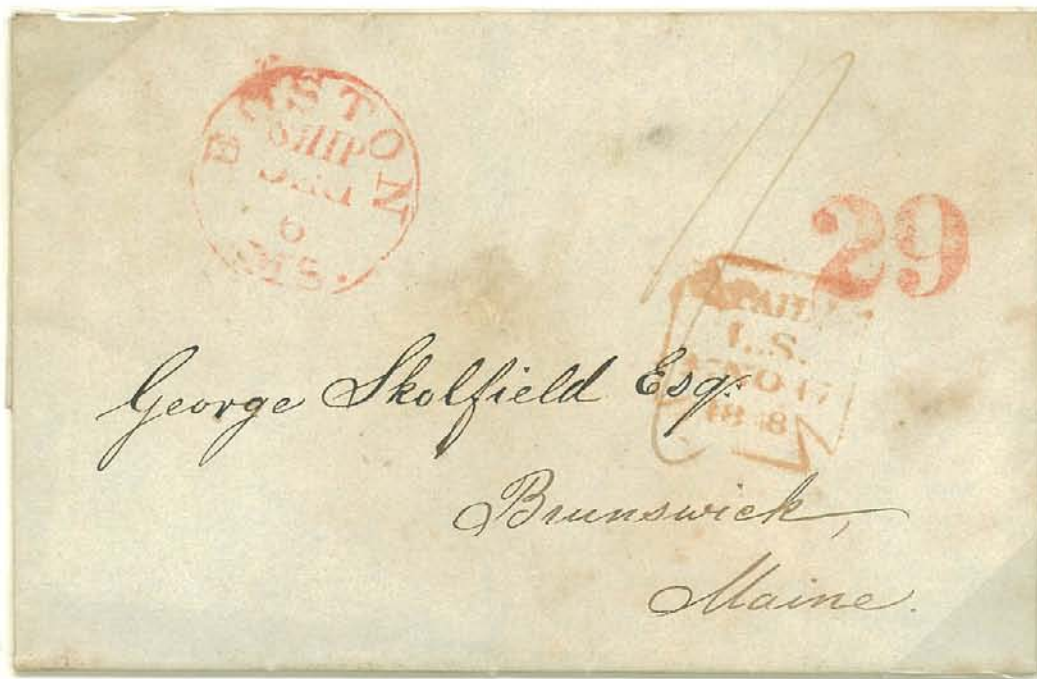 BOSTON
SHIP
DEC
6
MS.
29
PAID
L.S.
17NO17
1848
George Skolfield Esq.
Brunswick,
Maine.